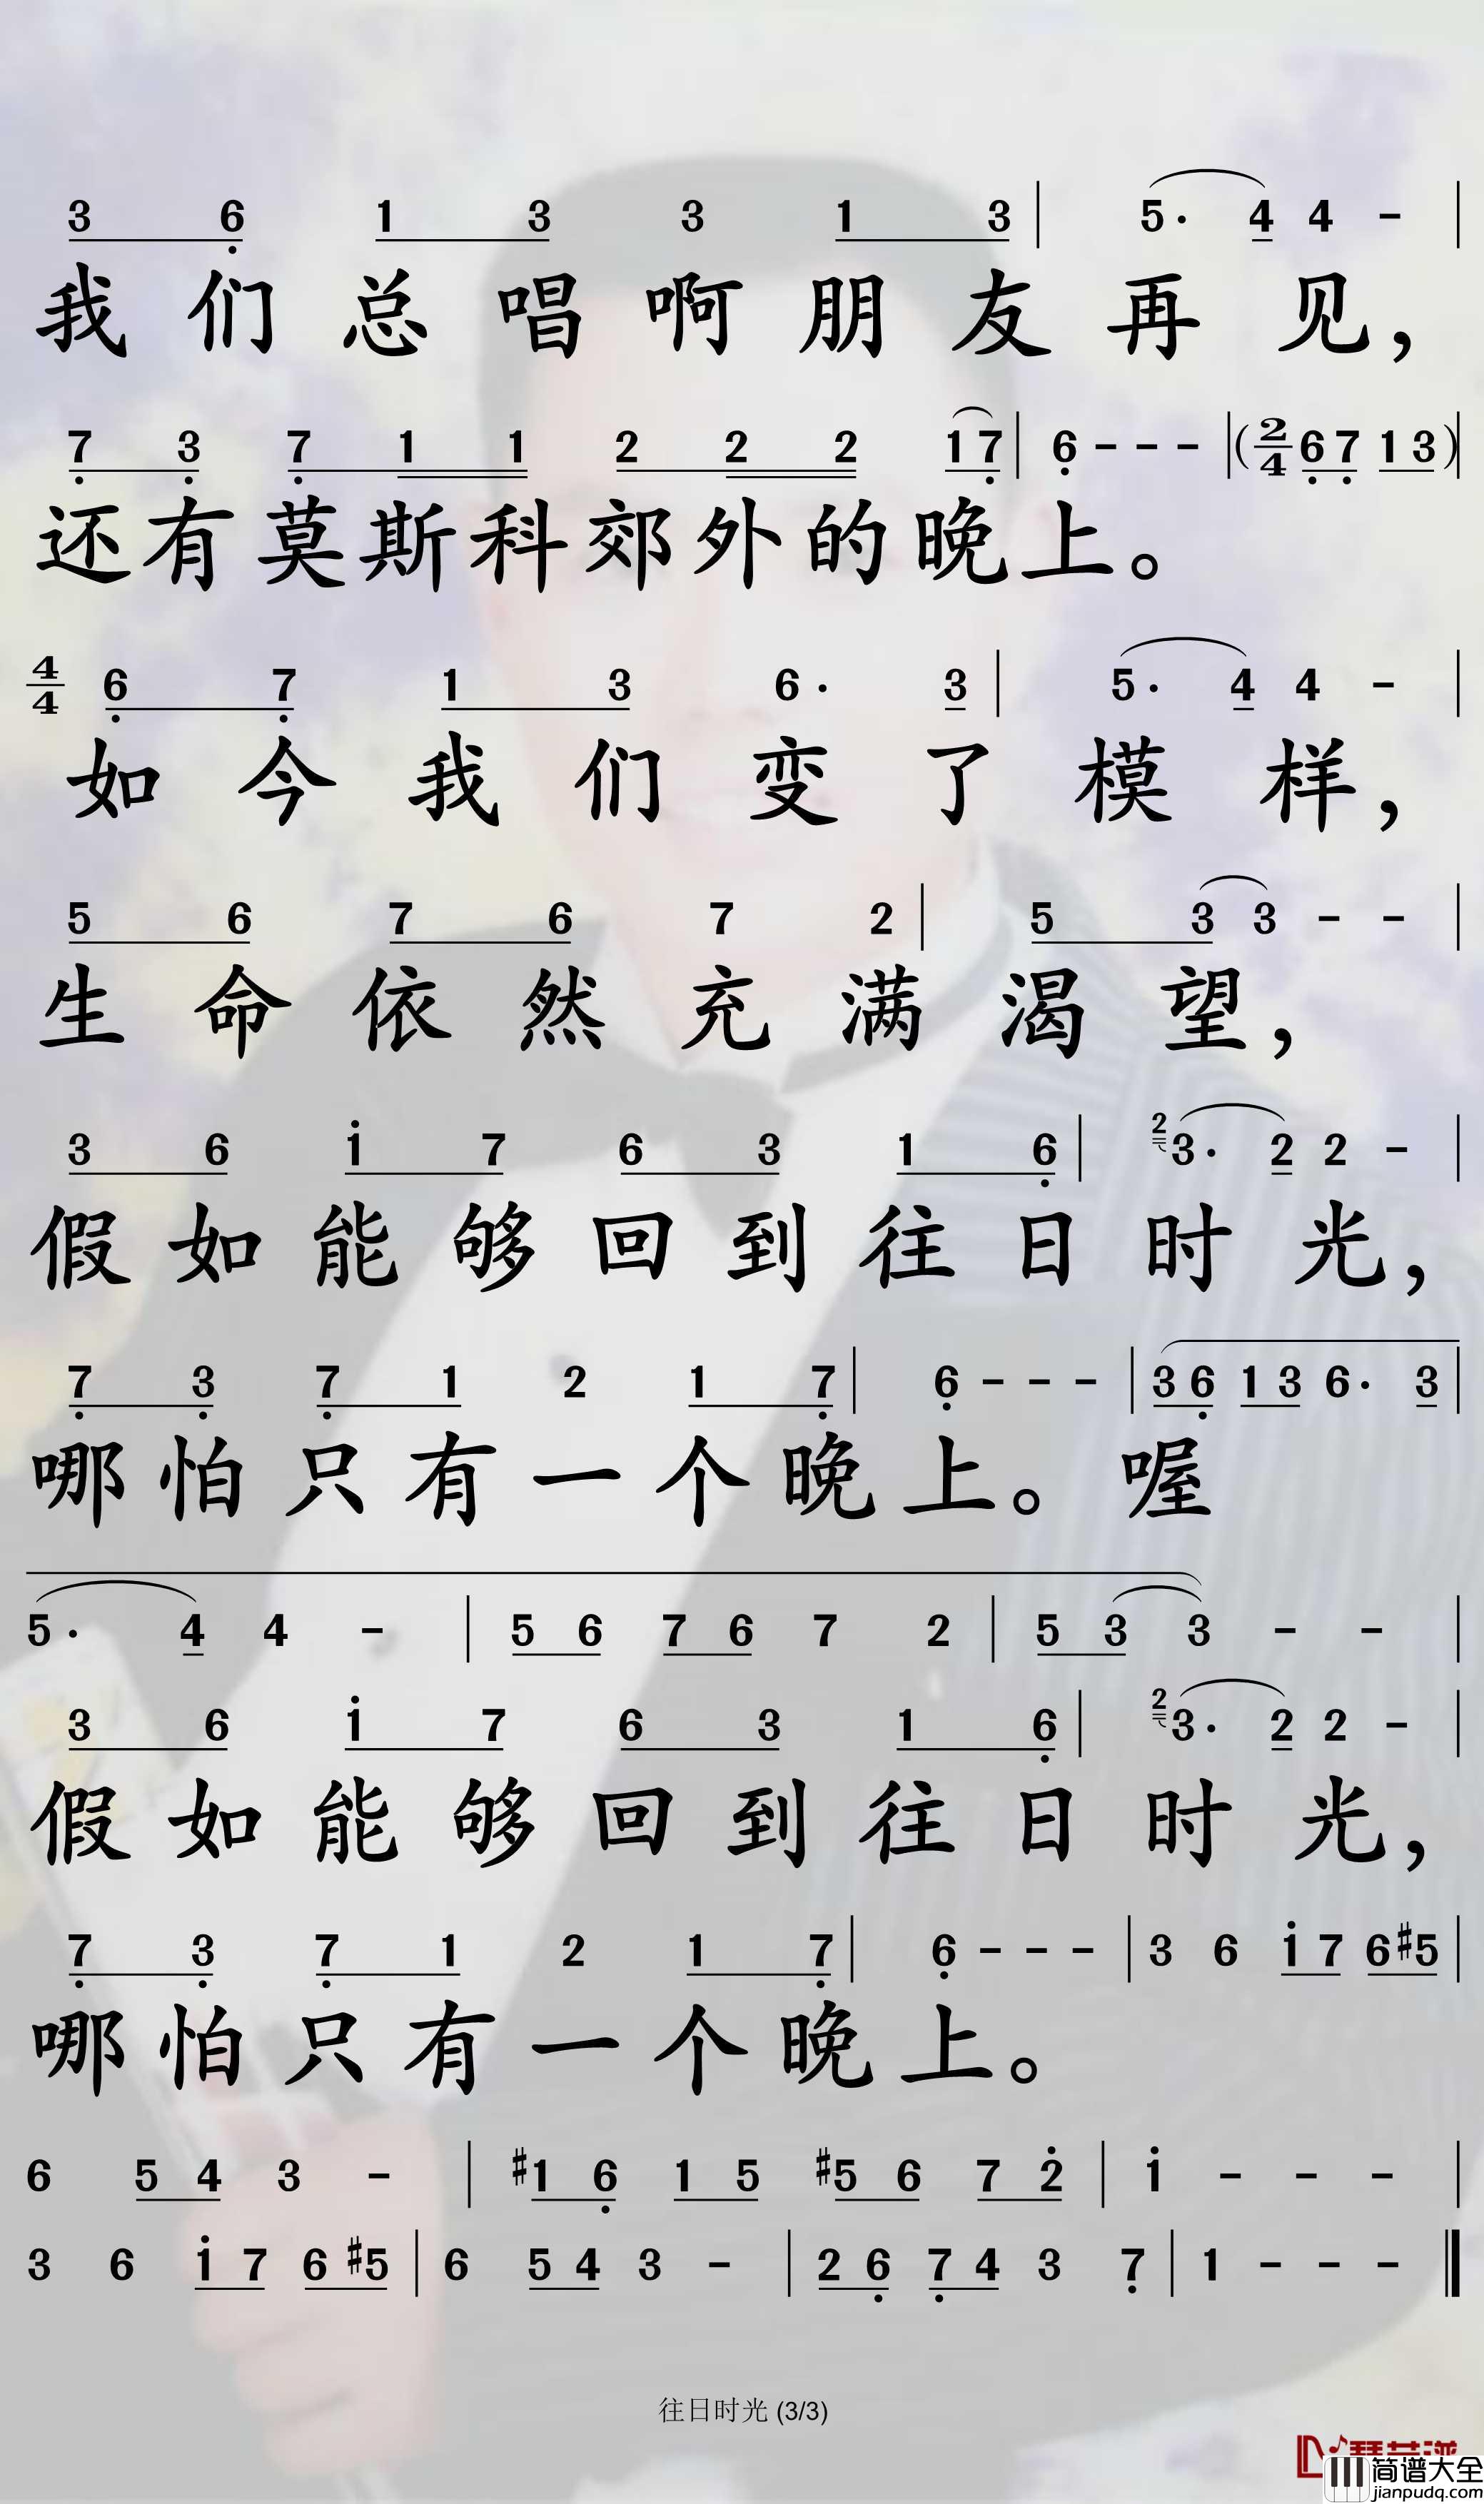 3 6 1 3 3 1 3 | 5· 4 4 - |
我们总唱啊朋友再见，
7 3 7 1 1 2 2 2 1 7 | 6 - - - | (2/4 6 7 1 3) |
还有莫斯科郊外的晚上。
4/4 6 7 1 3 6· 3 | 5· 4 4 - |
如今我们变了模样，
5 6 7 6 7 2 | 5 3 3 - - |
生命依然充满渴望，
3 6 i 7 6 3 1 6 | 2 3· 2 2 - |
假如能够回到往日时光，
7 3 7 1 2 1 7 | 6 - - - | 3 6 1 3 6· 3 |
哪怕只有一个晚上。喔
5· 4 4 - | 5 6 7 6 7 2 | 5 3 3 - - |
3 6 i 7 6 3 1 6 | 2 3· 2 2 - |
假如能够回到往日时光，
7 3 7 1 2 1 7 | 6 - - - | 3 6 i 7 6 #5 |
哪怕只有一个晚上。
6 5 4 3 - | #1 6 1 5 #5 6 7 2 | i - - - |
3 6 i 7 6 #5 | 6 5 4 3 - | 2 6 7 4 3 7 | 1 - - - ‖
往日时光 (3/3)
简谱大全
jianpudq.com